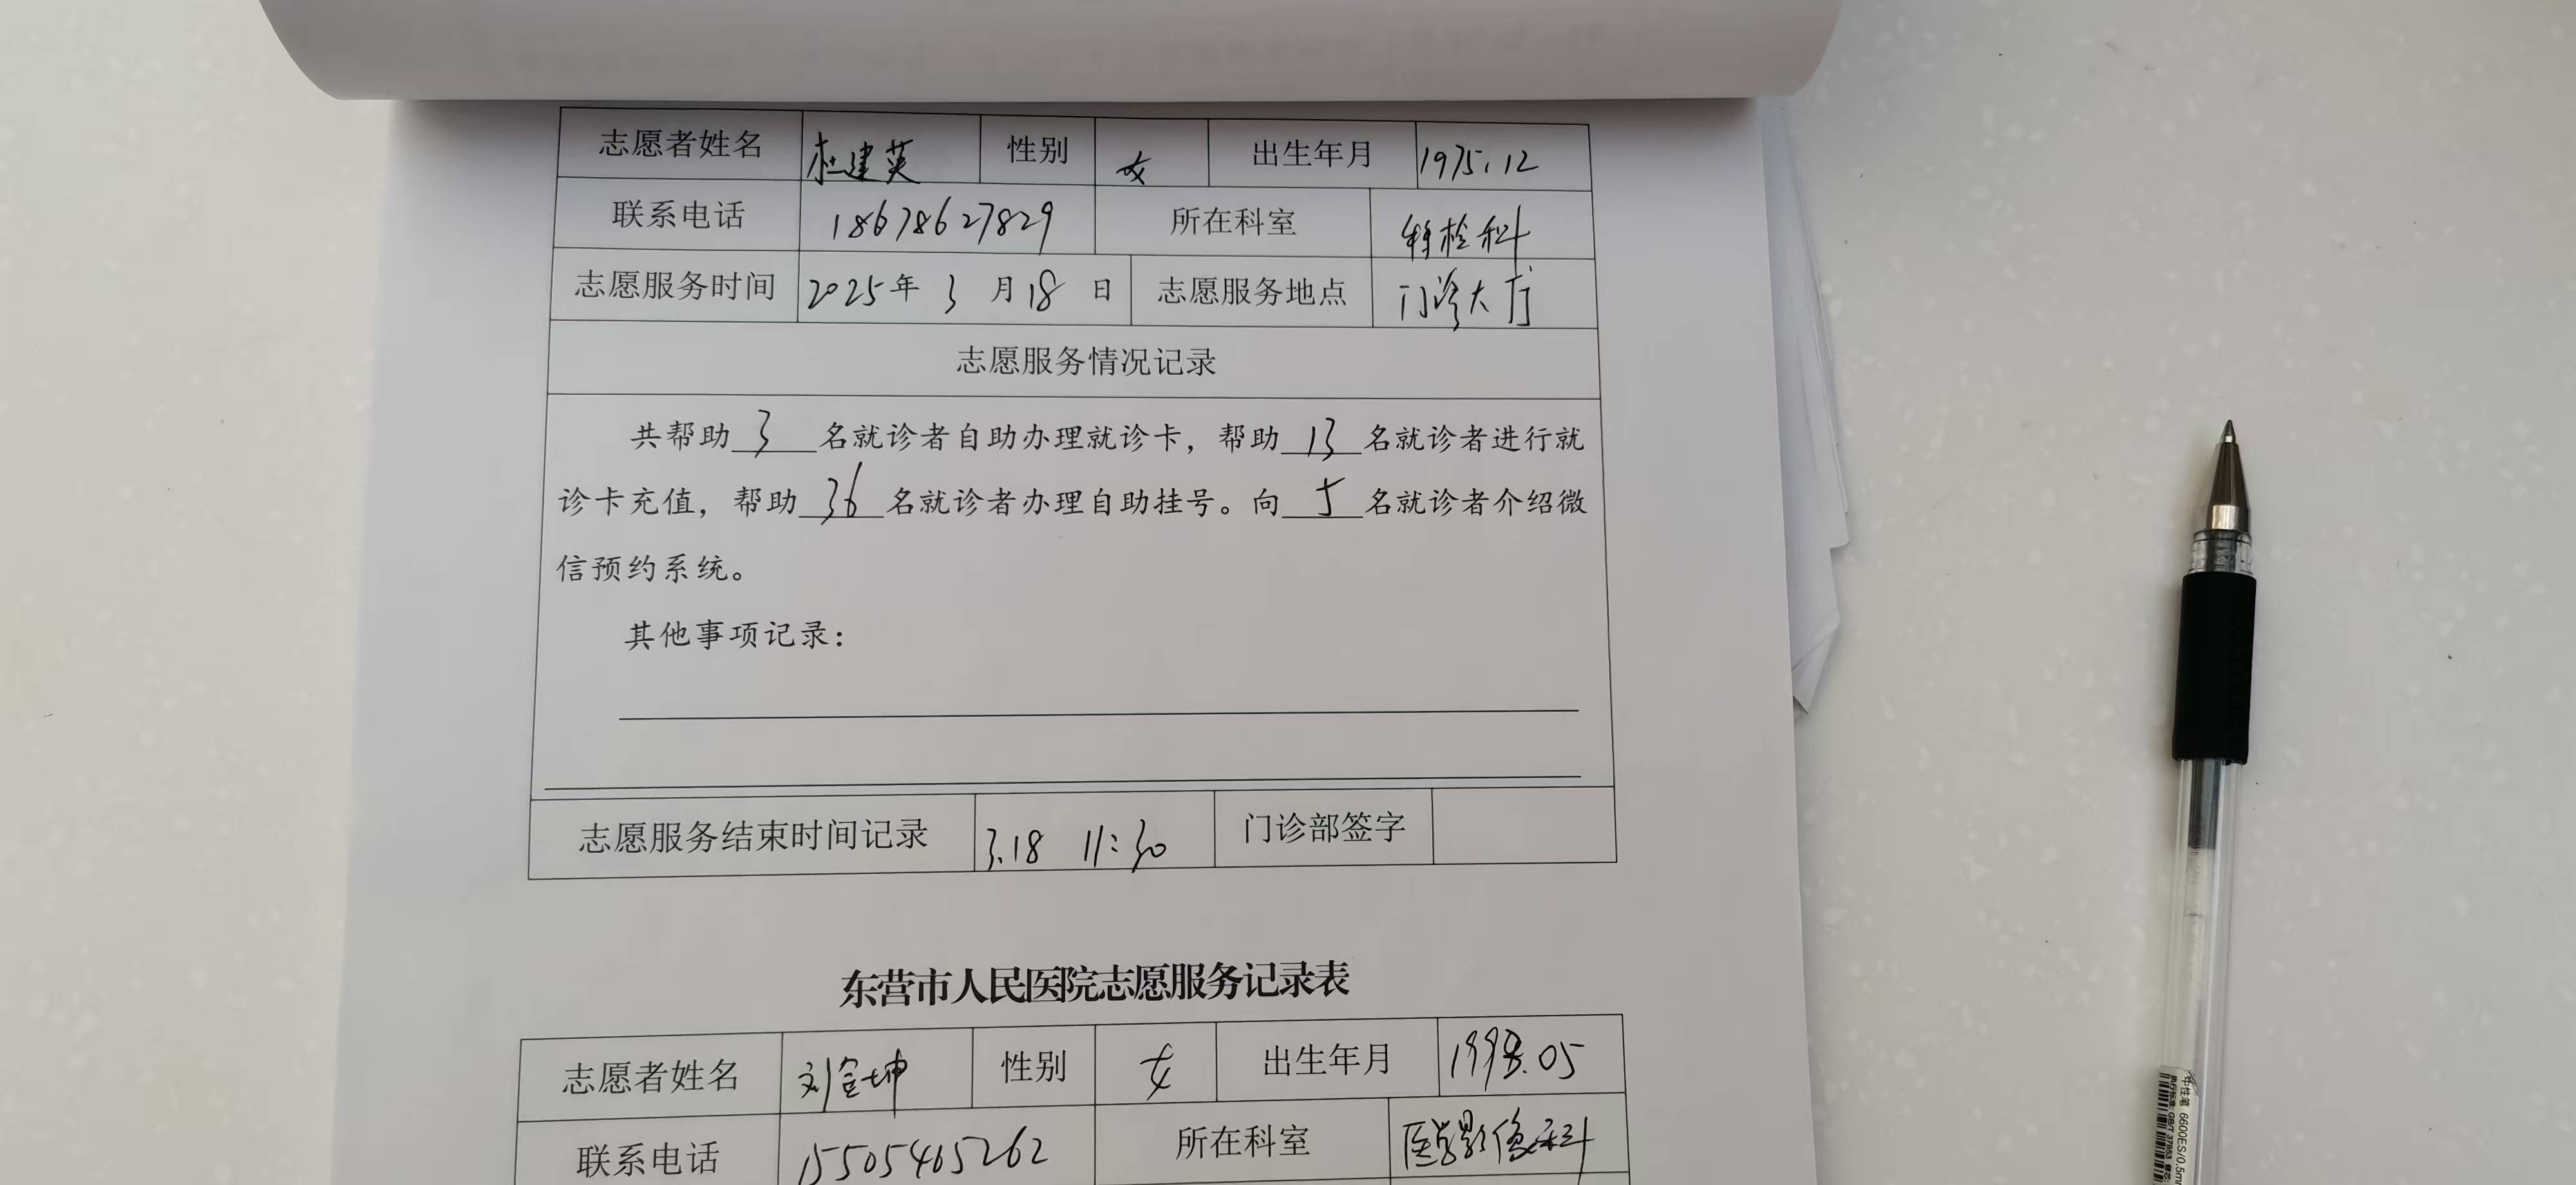 志愿者姓名 杜建英 性别 女 出生年月 1975.12
联系电话 18678627829 所在科室 特检科
志愿服务时间 2025年 3 月 18 日 志愿服务地点 门诊大厅
志愿服务情况记录
共帮助 3 名就诊者自助办理就诊卡，帮助 13 名就诊者进行就
诊卡充值，帮助 36 名就诊者办理自助挂号。向 5 名就诊者介绍微
信预约系统。
其他事项记录：
志愿服务结束时间记录 3.18 11:30 门诊部签字
东营市人民医院志愿服务记录表
志愿者姓名 刘 坤 性别 女 出生年月 1998.05
联系电话 15505465262 所在科室 医学影像科
中性笔 6600ES/0.5m